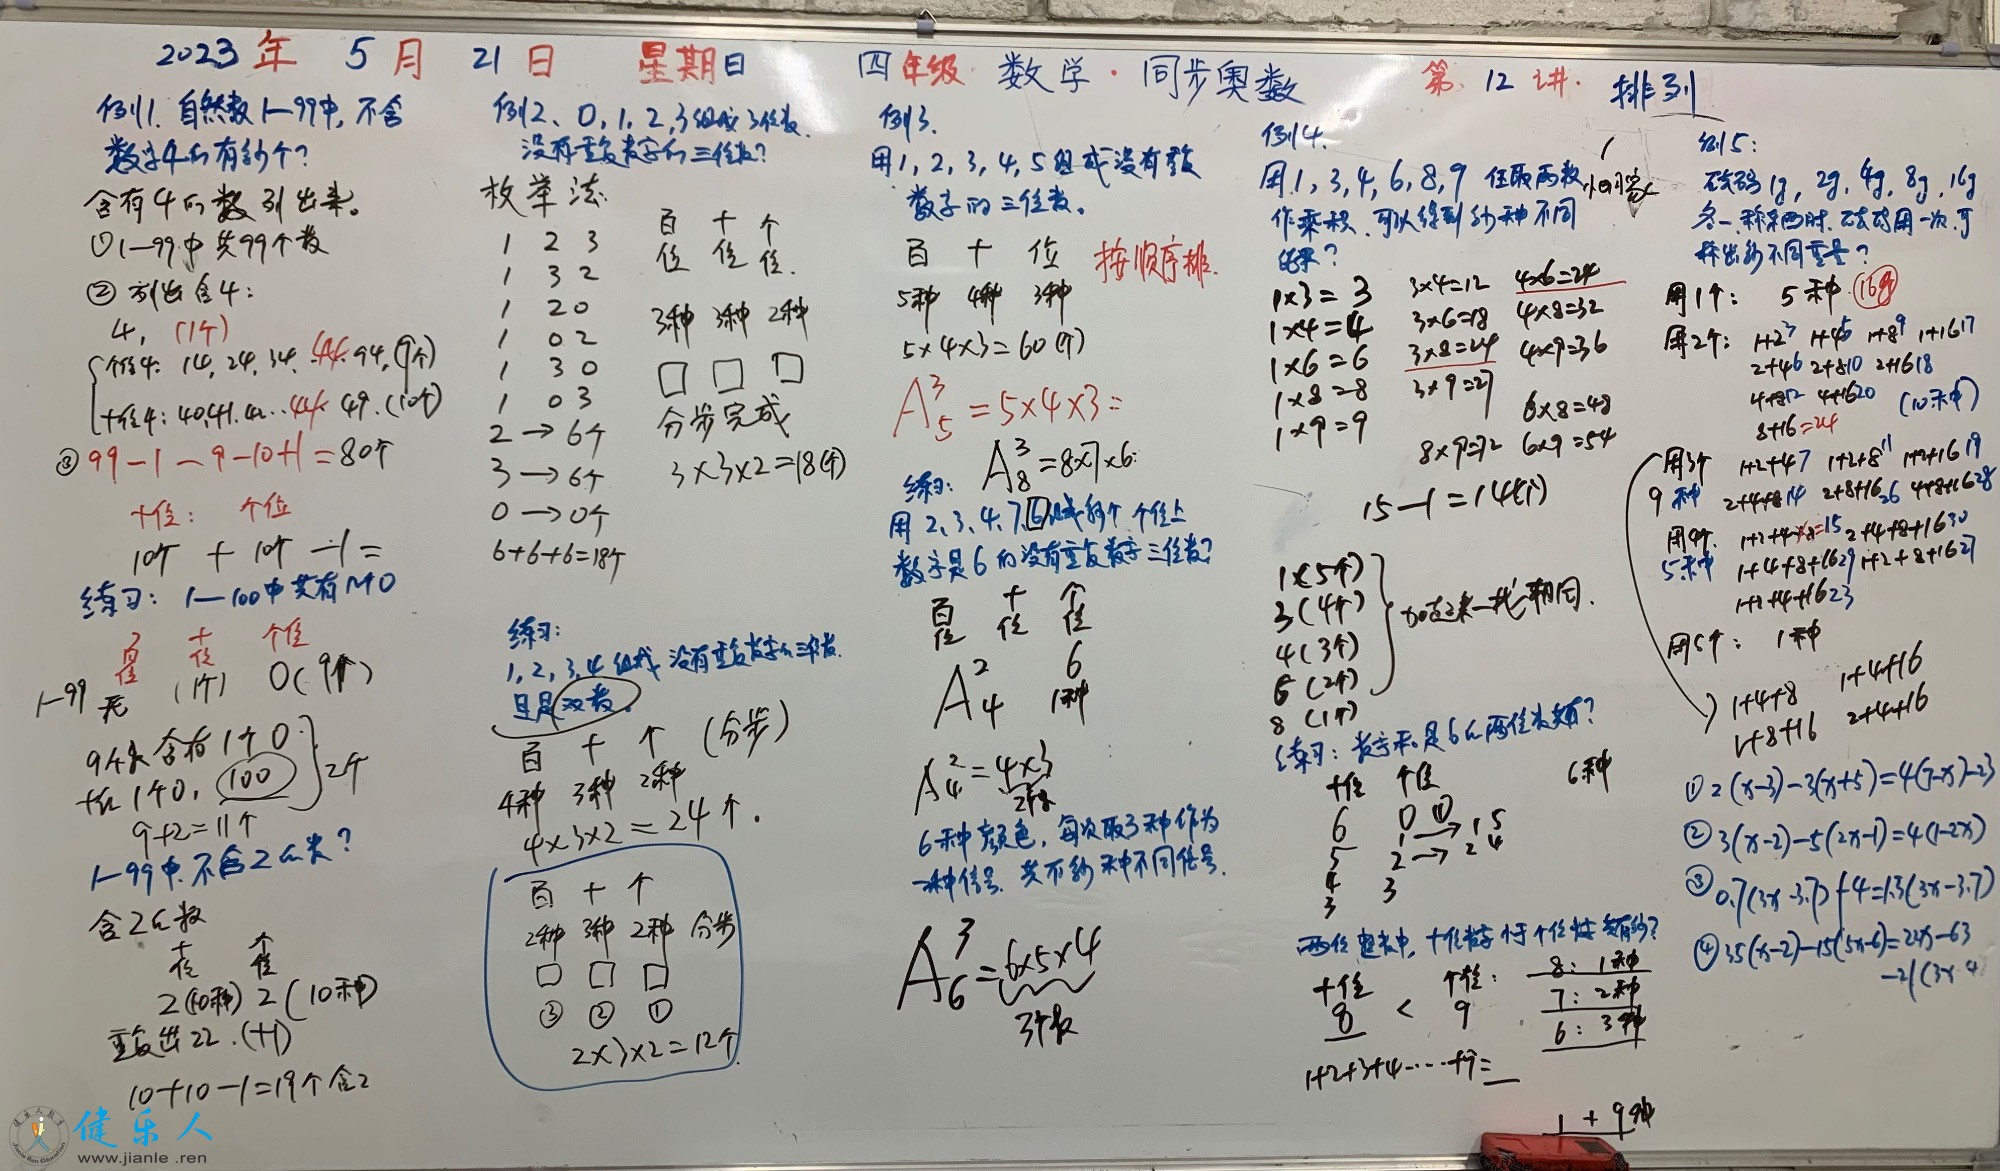 2023年 5月 21日 星期日 四年级 数学·同步奥数 第12讲. 排列
例1. 自然数1—99中, 不含
数字4的有多少个?
含有4的数列出来。
①1—99中共99个数
②列出含4:
4, (1个)
个位4: 14, 24, 34, 44, 94, (9个)
十位4: 40, 41, 42...44. 49. (10个)
③ 99-1-9-10+1=80个
十位: 个位
10个 + 10个 -1=
练习: 1—100中共有几个0
百位 十位 个位
1-99 无 (1个) 0(9个)
9个数含有1个0
100
2个
9+2=11个
1—99中不含2的数?
含2的数
十位 个位
2(10种) 2(10种)
重复出22. (+1)
10+10-1=19个含2
例2、0, 1, 2, 3组成3位数.
没有重复数字的三位数?
枚举法
1 2 3
1 3 2
1 2 0
1 0 2
1 3 0
1 0 3
2→6个
3→6个
0→0个
6+6+6=18个
百位 十位 个位.
3种 3种 2种
分步完成
3×3×2=18(个)
练习:
1, 2, 3, 4组成没有重复数字的三位数.
且是双数。
百 十 个 (分步)
4种 3种 2种
4×3×2=24个.
百 十 个
2种 3种 2种 分步
③ ② ①
2×3×2=12个
例3.
用1, 2, 3, 4, 5组成没有重复
数字的三位数。
百 十 位 按顺序排.
5种 4种 3种
5×4×3=60(个)
A₅³=5×4×3=
A₈³=8×7×6
练习:
用2, 3, 4, 7, 6组成多少个个位上
数字是6的没有重复数字三位数?
百位 十位 个位
A₄² 6
1种
A₄²=4×3
2个数
6种颜色, 每次取3种作为
一种信号. 共有多少种不同信号.
A₆³=6×5×4
3个数
例4.
用1, 3, 4, 6, 8, 9 任取两数
作乘积. 可以得到多少种不同
结果?
1×3=3 3×4=12 4×6=24
1×4=4 3×6=18 4×8=32
1×6=6 3×8=24 4×9=36
1×8=8 3×9=27
1×9=9 6×8=48
8×9=72 6×9=54
15-1=14(个)
1(5个)
3(4个)
4(3个)
6(2个)
8(1个)
练习: 数字和是6的两位数有?
十位 个位 6种
6 0
5 1→15
4 2→24
3 3
两位整数中, 十位数字小于个位数字数有多少?
十位 个位: 8: 1种
8 < 9 7: 2种
6: 3种
1+2+3+4……+9=
1 + 9种
例5:
砝码1g, 2g, 4g, 8g, 16g
各一. 称东西时. 砝码用一次. 可
称出多少不同重量?
用1个: 5种 16g
用2个: 1+2 3 1+4 5 1+8 9 1+16 17
2+4 6 2+8 10 2+16 18
4+8 12 4+16 20 (10种)
8+16=24
用3个 1+2+4 7 1+2+8 11 1+2+16 19
9种 2+4+8 14 2+8+16 26 4+8+16 28
用4个. 1+2+4+8=15 2+4+8+16 30
5种 1+4+8+16 29 1+2+8+16 27
1+2+4+16 23
用5个: 1种
1+4+8 1+4+16
1+8+16 2+4+16
① 2(x-3)-3(x+5)=4(7-x)-23
② 3(x-2)-5(2x-1)=4(1-2x)
③ 0.7(3x-3.7)+4=1.3(3x-3.7)
④ 35(x-2)-15(5x-6)=22x-63
-21(3x-4
健乐人
www.jianle.ren